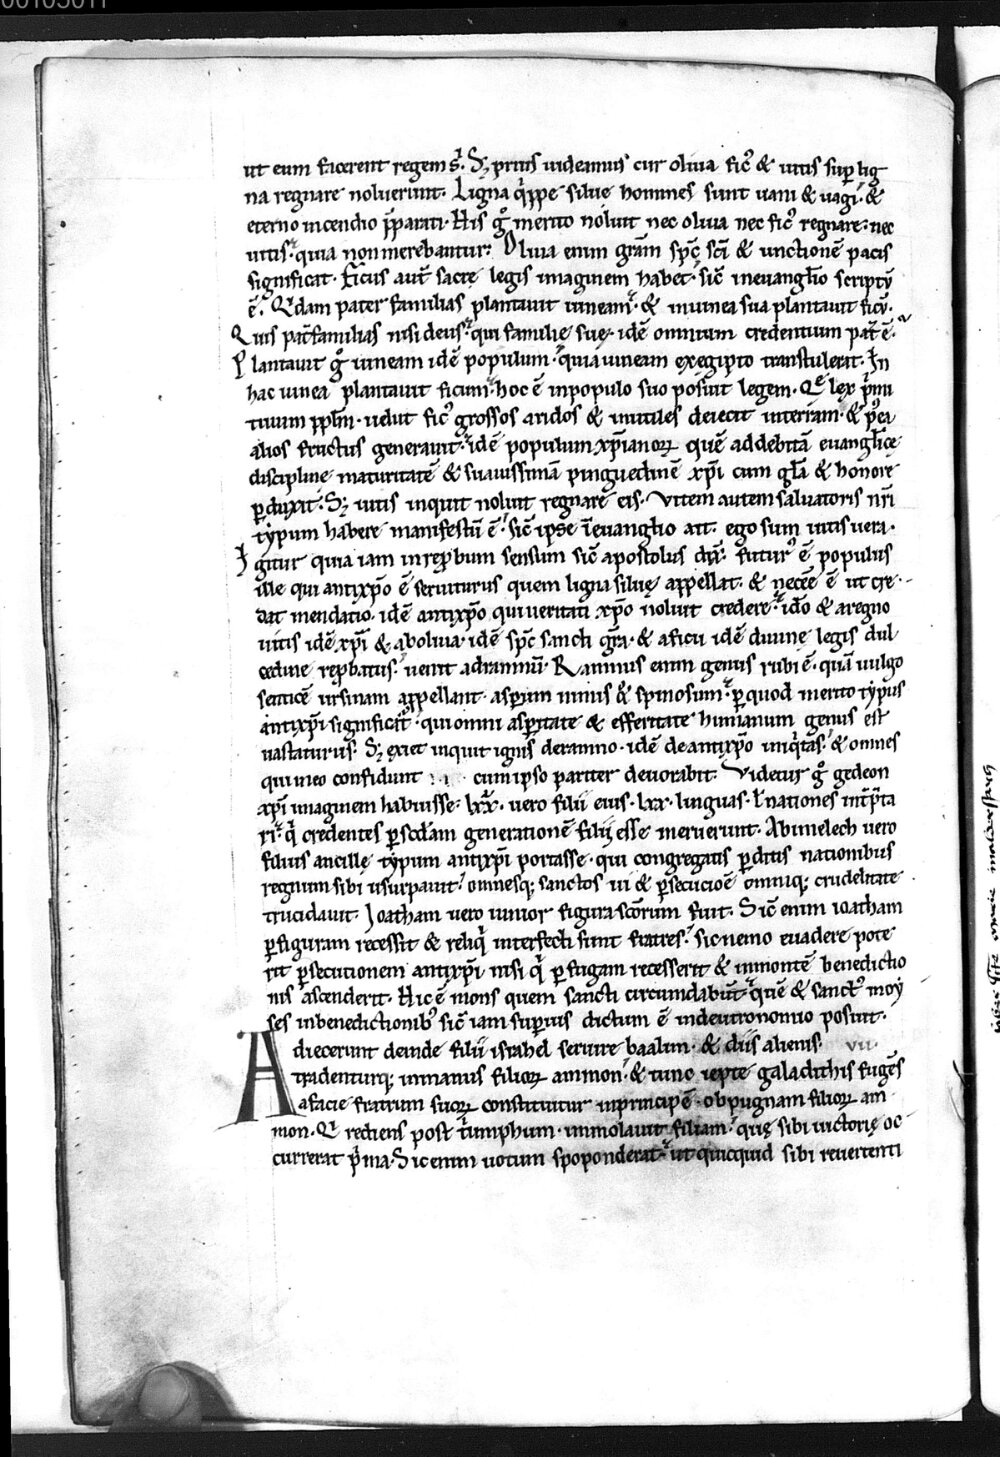 00103011
ut eum facerent regem s̄. Sꝫ prius uideamus cur oliua ficꝰ & uitis sup lig
na regnare noluerunt. Ligna q̇ppe siluę homines sunt uani & uagi. &
eterno incendio p̄parati. His g̊ merito noluit nec oliua nec ficꝰ regnare. nec
uitis. quia non merebantur. Oliua enim gr̄am sp̄c sc̄i & unctionē pacis
significat. Ficus aut̄ sacrę legis imaginem habet. sic̄ ineuanḡlio scriptū
ē. Q̇dam pater familias plantauit uineam. & inuinea sua plantauit ficū.
Quis pat̄familias nisi deus. qui familię suę. idē omnium credentium pat̄ ē.
Plantauit g̊ uineam idē populum. quia uineam exegipto transtulerat. In
hac uinea plantauit ficum. hoc ē inpopulo suo posuit legem. Qē lex p̄mi
tiuum ppl̄m. uelut ficꝰ grossos aridos & inutiles deiecit interram. & p̄ea
alios fructus generauit. idē populum xp̄ianoꝝ quē addebitā euangl̄icę
disciplinę maturitatē & suauissimā pinguedinē xp̄i cum gl̄a & honore
ꝑduxit. Sꝫ uitis inquit noluit regnare eis. Vitem autem saluatoris nr̄i
typum habere manifestū ē. sic̄ ipse īeuanglio ait. ego sum uitis uera.
Igitur quia iam inrep̄bum sensum sic̄ apostolus dix̄. futurꝰ ē populus
ille qui antixp̄o ē seruiturus quem ligna siluę appellat. & necēe ē ut cre
dat mendatio. idē antixp̄o qui ueritati xp̄o noluit credere. id̊o & aregno
uitis idē xp̄i & aboliua. idē sp̄c sancti gr̄a. & aficu idē diuinę legis dul
cedine rep̄batus. uenit adramnū. Ramnus enim genus rubi ē. quā uulgo
senticē ursinam appellant. asperum nimis & spinosum. ꝑ quod merito typus
antixp̄i significat̄. qui omni asꝑitate & efferitate humanum genus est
uastaturus. Sꝫ exiet inquit ignis deramno. idē de antixp̄o iniq̇tas. & omnes
qui ineo confidunt cum ipso pariter deuorabit. Videtur g̊ gedeon
xp̄i imaginem habuisse. lxx. uero filii eius. lxx. linguas. l̄ nationes int̄p̄ta
ri. q̇ credentes ꝑ sc̄dam generationē filij esse meruerunt. Abimelech uero
filius ancillę typum antixp̄i portasse. qui congregatis ꝑditis nationibus
regnum sibi usurpauit. omnesqꝫ sanctos ui & ꝑsecucioē omniqꝫ crudelitate
trucidauit. Joatham uero iunior figura sc̄orum fuit. Sic̄ enim ioatham
ꝑ figuram recessit & reliq̇ interfecti sunt fratres. sic nemo euadere pote
rit ꝑsecutionem antixp̄i nisi q̇ ꝑ fugam recesserit & inmontē benedictio
nis ascenderit. Hic ē mons quem sancti circumdabūt. quē & sanctꝰ moy
ses inbenedictionibꝰ sic̄ iam superius dictum ē indeutronomio posuit.
Adiecerunt deinde filii israhel seruire baalim. & diis alienis. VII.
Tradenturqꝫ inmanus filioꝝ ammon. & tunc iepte galadithis fugēs
a facie fratrum suoꝝ constituitur inprincipē. obpugnam filioꝝ am
mon. Q̇ rediens post t̄umphum. immolauit filiam. quę sibi uictorię oc
currerat p̄ma. Sic enim uotum spoponderat. ut quicquid sibi reuertenti